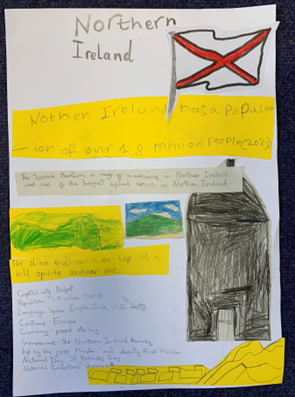 Northern
Ireland
Nothen Irelund has a Populat
ion of over 1.8 million people (2023)
The Sperrin Mountains a range of mountains in Northern Ireland
and one of the largest upland areas in Northern Ireland
The slieve Gullion is on top of a
hill
Capital city: Belfast
Population: 1.9 million
Language Spoken: English, Irish, Ulster
Continent: Europe
Currency: pound sterling
Government: the Northern Ireland Assembly
led by the first Minister and deputy First Minister
National Day: St Patricks Day
National